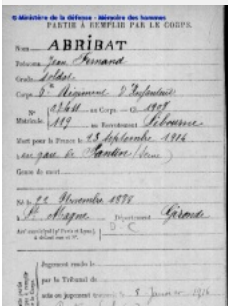 © Ministère de la défense - Mémoire des hommes
PARTIE À REMPLIR PAR LE CORPS.
Nom ABRIBAT
Prénoms Jean Fernand
Grade Soldat
Corps Régiment d'Infanterie
N° au Corps. — Cl. 1908
Matricule. 119 au Recrutement Libourne
Mort pour la France le 23 Septembre 1914
à en gare de Pantin (Seine)
Genre de mort
Né le 22 Novembre 1888
à St Magne Département Gironde
Arrt municipal (pr Paris et Lyon),
à défaut rue et N°.
Jugement rendu le
par le Tribunal de
acte ou jugement transcrit le 5 Janvier 1916